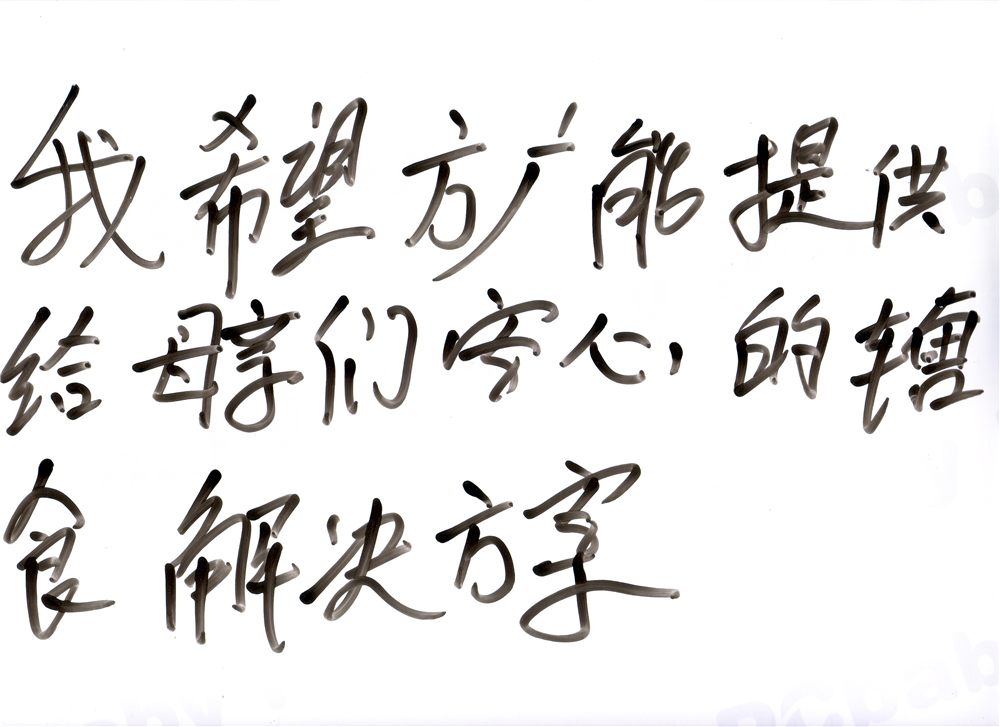 我希望方广能提供
给母亲们安心的辅
食解决方案